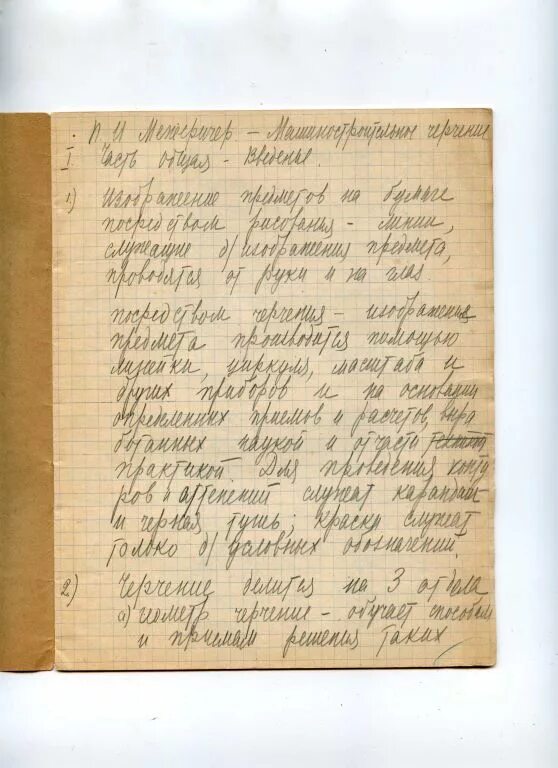 П. И Межеричер – Машиностроительное черчение
I. Часть общая – Введенье.
1) Изображение предметов на бумаге
посредством рисования – линии,
служащие д/изображения предмета,
проводятся от руки и на глаз
посредством черчения – изображения
предмета производится помощью
линейки, циркуля, масштаба и
других приборов и на основании
определенных приемов и расчетов, выра
ботанных наукой и отчасти
практикой. Для проведения конту
ров и оттенений служат карандаш
и черная тушь; краски служат
только д/ условных обозначений
2) Черчение делится на 3 отдела
а) геометр черчение – обучает способам
и приемам решения таких